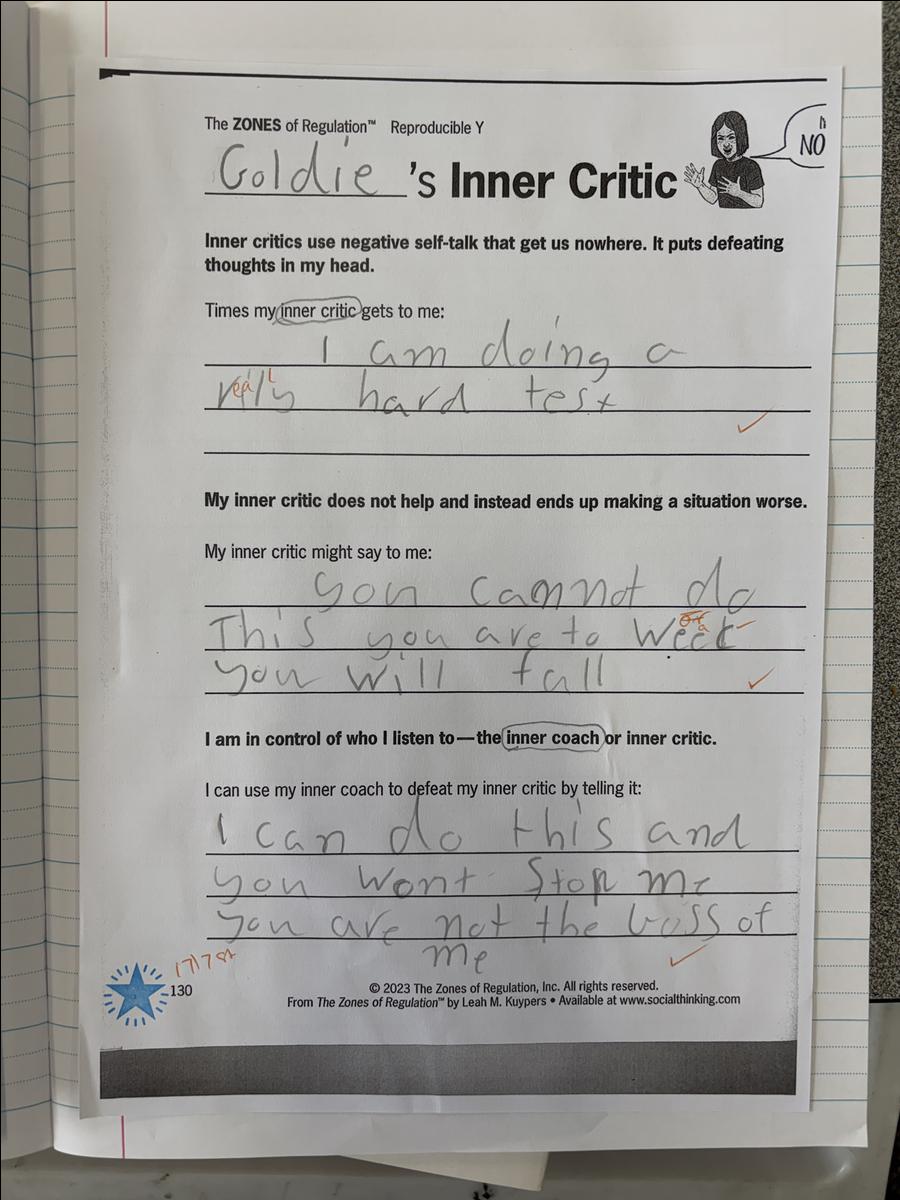 The ZONES of Regulation™ Reproducible Y
NO
Goldie 's Inner Critic
Inner critics use negative self-talk that get us nowhere. It puts defeating
thoughts in my head.
Times my inner critic gets to me:
I am doing a
really hard test
My inner critic does not help and instead ends up making a situation worse.
My inner critic might say to me:
you cannot do
This you are to weak
you will fall
I am in control of who I listen to—the inner coach or inner critic.
I can use my inner coach to defeat my inner critic by telling it:
I can do this and
you wont stop me
you are not the boss of
me
130
© 2023 The Zones of Regulation, Inc. All rights reserved.
From The Zones of Regulation™ by Leah M. Kuypers • Available at www.socialthinking.com